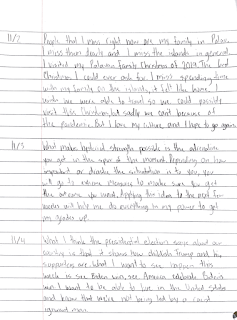 11/2 People that I miss right now are my family in Palau.
I miss them dearly and I miss the islands in general.
I visited my Palauan family Christmas of 2019. The best
Christmas I could ever ask for. I miss spending time
with my family on the islands, it felt like home. I
wish we were able to travel so we could possibly
visit this Christmas, but sadly we can't because of
the pandemic. But I love my culture and I hope to go again.
11/3 What makes hysterical strength possible is the adrenaline
you get in the spur of the moment. Depending on how
important or drastic the situation is to you, you
will go to extreme measure to make sure you get
the outcome you want. Applying this idea to the next few
weeks will help me do everything in my power to get
my grades up.
11/4 What I think the presidential election says about our
country is that it shows how childish Trump and his
supporters are. What I want to see happen this
week is see Biden win, see America celebrate Biden's
win. I want to be able to live in the United States
and know that we're not being led by a
ignorant man.